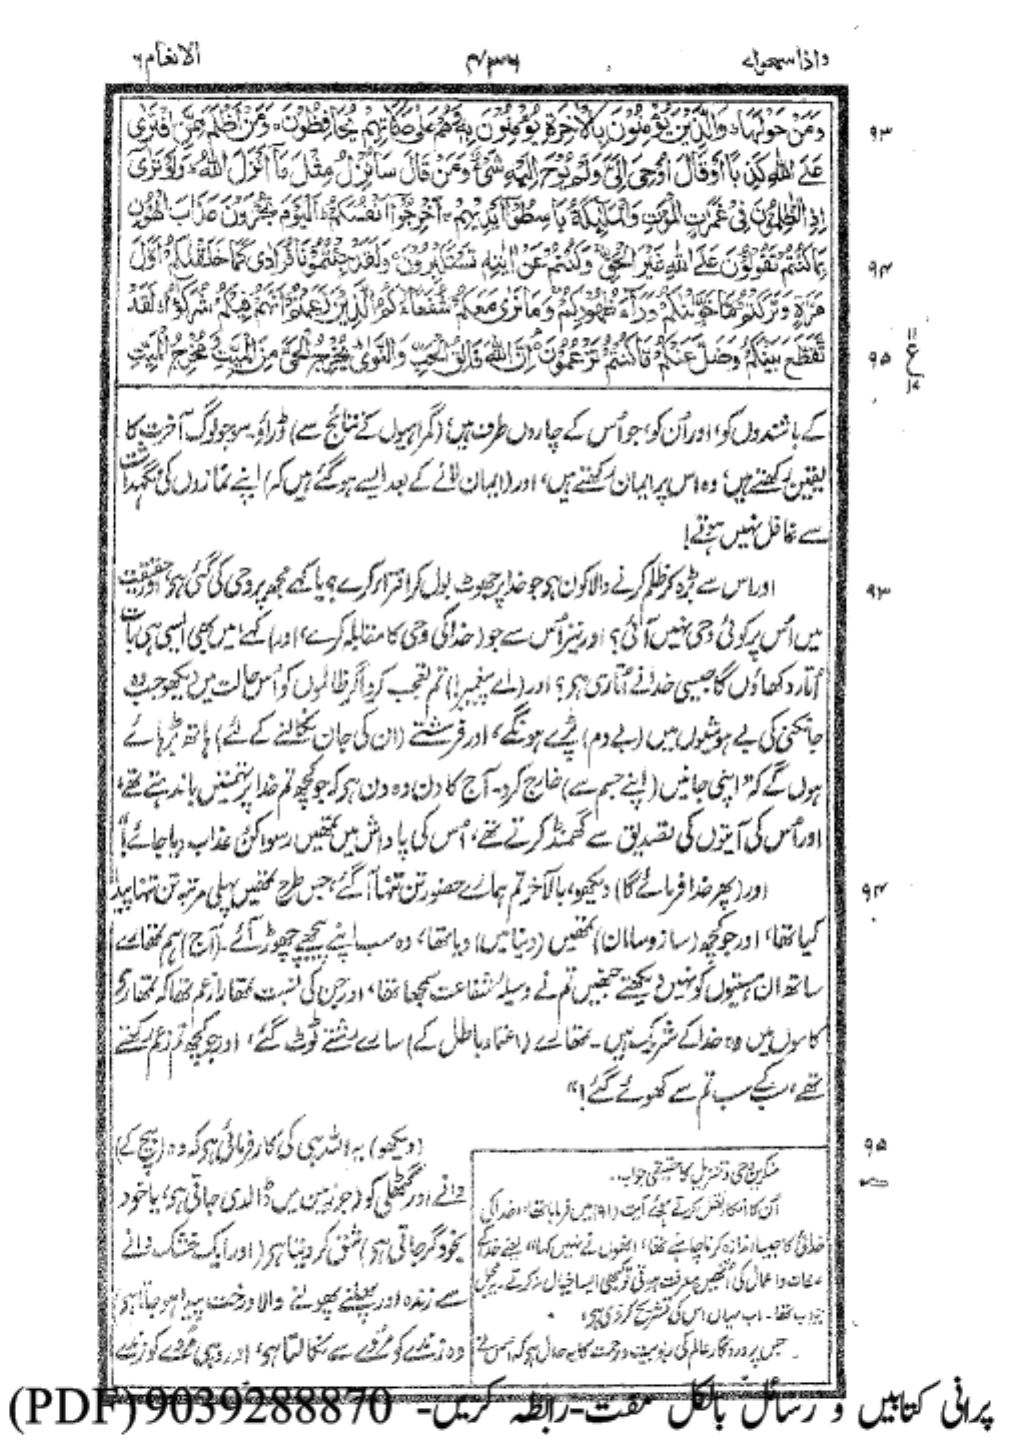 واذا سمعوا ٧
٤٣٦
الانعام ٦
وَمَنْ حَوْلَهَا وَالَّذِيْنَ يُؤْمِنُوْنَ بِالْاٰخِرَةِ يُؤْمِنُوْنَ بِهٖ وَهُمْ عَلٰى صَلَاتِهِمْ يُحَافِظُوْنَ وَمَنْ اَظْلَمُ مِمَّنِ افْتَرٰى
۹۳
عَلَى اللّٰهِ كَذِبًا اَوْ قَالَ اُوْحِيَ اِلَيَّ وَلَمْ يُوْحَ اِلَيْهِ شَيْءٌ وَّمَنْ قَالَ سَاُنْزِلُ مِثْلَ مَآ اَنْزَلَ اللّٰهُ وَلَوْ تَرٰٓى
اِذِ الظّٰلِمُوْنَ فِيْ غَمَرٰتِ الْمَوْتِ وَالْمَلٰٓئِكَةُ بَاسِطُوْٓا اَيْدِيْهِمْ اَخْرِجُوْٓا اَنْفُسَكُمْ اَلْيَوْمَ تُجْزَوْنَ عَذَابَ الْهُوْنِ
بِمَا كُنْتُمْ تَقُوْلُوْنَ عَلَى اللّٰهِ غَيْرَ الْحَقِّ وَكُنْتُمْ عَنْ اٰيٰتِهٖ تَسْتَكْبِرُوْنَ وَلَقَدْ جِئْتُمُوْنَا فُرَادٰى كَمَا خَلَقْنٰكُمْ اَوَّلَ
۹۴
مَرَّةٍ وَّتَرَكْتُمْ مَّا خَوَّلْنٰكُمْ وَرَآءَ ظُهُوْرِكُمْ وَمَا نَرٰى مَعَكُمْ شُفَعَآءَكُمُ الَّذِيْنَ زَعَمْتُمْ اَنَّهُمْ فِيْكُمْ شُرَكٰٓؤُا لَقَدْ
تَّقَطَّعَ بَيْنَكُمْ وَضَلَّ عَنْكُمْ مَّا كُنْتُمْ تَزْعُمُوْنَ اِنَّ اللّٰهَ فَالِقُ الْحَبِّ وَالنَّوٰى يُخْرِجُ الْحَيَّ مِنَ الْمَيِّتِ وَمُخْرِجُ الْمَيِّتِ
۹۵
کے باشندوں کو، اور اُن کو، جو اُس کے چاروں طرف ہیں، (گمراہیوں کے نتائج سے) ڈراؤ۔ سو جو لوگ آخرت کا
یقین رکھتے ہیں، وہ اس پر ایمان رکھتے ہیں، اور (ایمان لانے کے بعد ایسے ہو گئے ہیں کہ) اپنے نمازوں کی نگہداشت
سے غافل نہیں ہوتے!
اور اس سے بڑھ کر ظلم کرنے والا کون ہو جو خدا پر جھوٹ بول کر افترا کرے؟ یا کہے مجھ پر وحی کی گئی ہو، اور حقیقت
۹۳
میں اُس پر کوئی وحی نہیں آئی؟ اور نیز اُس سے جو (خدا کی وحی کا مقابلہ کرے، اور) کہے میں بھی ایسی ہی بات
اُتار دکھاؤں گا جیسی خدا نے اُتاری ہو؟ اور (اے پیغمبر!) تم تعجب کرو اگر ظالموں کو اُس حالت میں دیکھو جب وہ
جانکنی کی بے ہوشیوں میں (بے دم) پڑے ہونگے، اور فرشتے (ان کی جان نکالنے کے لئے) ہاتھ بڑھائے
ہوں گے کہ "اپنی جانیں (اپنے جسم سے) خارج کرو۔ آج کا دن وہ دن ہو کہ جو کچھ تم خدا پر تہمتیں باندھتے تھے،
اور اُس کی آیتوں کی تصدیق سے گھمنڈ کرتے تھے، اُس کی پاداش میں تمھیں رسوا کن عذاب دیا جائے!"
اور (پھر خدا فرمائے گا) دیکھو، بالآخر تم ہمارے حضور تن تنہا آ گئے، جس طرح تمھیں پہلی مرتبہ تن تنہا پیدا
۹۴
کیا تھا، اور جو کچھ (ساز و سامان) تمھیں (دنیا میں) دیا تھا، وہ سب اپنے پیچھے چھوڑ آئے۔ (آج) ہم تمھارے
ساتھ ان ہستیوں کو نہیں دیکھتے جنھیں تم نے وسیلۂ شفاعت سمجھا تھا، اور جن کی نسبت تمھارا زعم تھا کہ تمھارے
کاموں میں وہ خدا کے شریک ہیں۔ تمھارے (اعتماد باطل کے) سارے رشتے ٹوٹ گئے، اور جو کچھ تم زعم رکھتے
تھے، سب کے سب تم سے کھوئے گئے!"
(دیکھو) یہ اللہ ہی کی کارفرمائی ہو کہ وہ (بیج کے)
۹۵
دانے اور گٹھلی کو (جو زمین میں ڈالدی جاتی ہو، یا خود
بخود گر جاتی ہو) شق کر دیتا ہو (اور ایک خشک دانے
سے زندہ اور پھلنے پھولنے والا درخت پیدا ہو جاتا ہو)
وہ زندے کو مُردے سے نکالتا ہو، اور وہی مُردے کو زندے
منکرین وحی و تنزیل کا حقیقی جواب۔
اُن کا انکار نقل کرتے ہوئے آیت (۹۱) میں فرمایا تھا، خدا کی
خدائی کا جیسا اندازہ کرنا چاہیے تھا، انھوں نے نہیں کیا، یعنے خدا کے
صفات و اعمال کی انھیں معرفت ہوتی تو کبھی ایسا خیال نہ کرتے۔ مجمل
جواب تھا۔ اب یہاں اس کی تشریح کر دی ہو۔
جس پروردگار عالم کی ربوبیت و رحمت کا یہ حال ہو کہ اُس نے
پرانی کتابیں و رسائل بالکل مفت-رابطہ کریں- 9039288870(PDF)